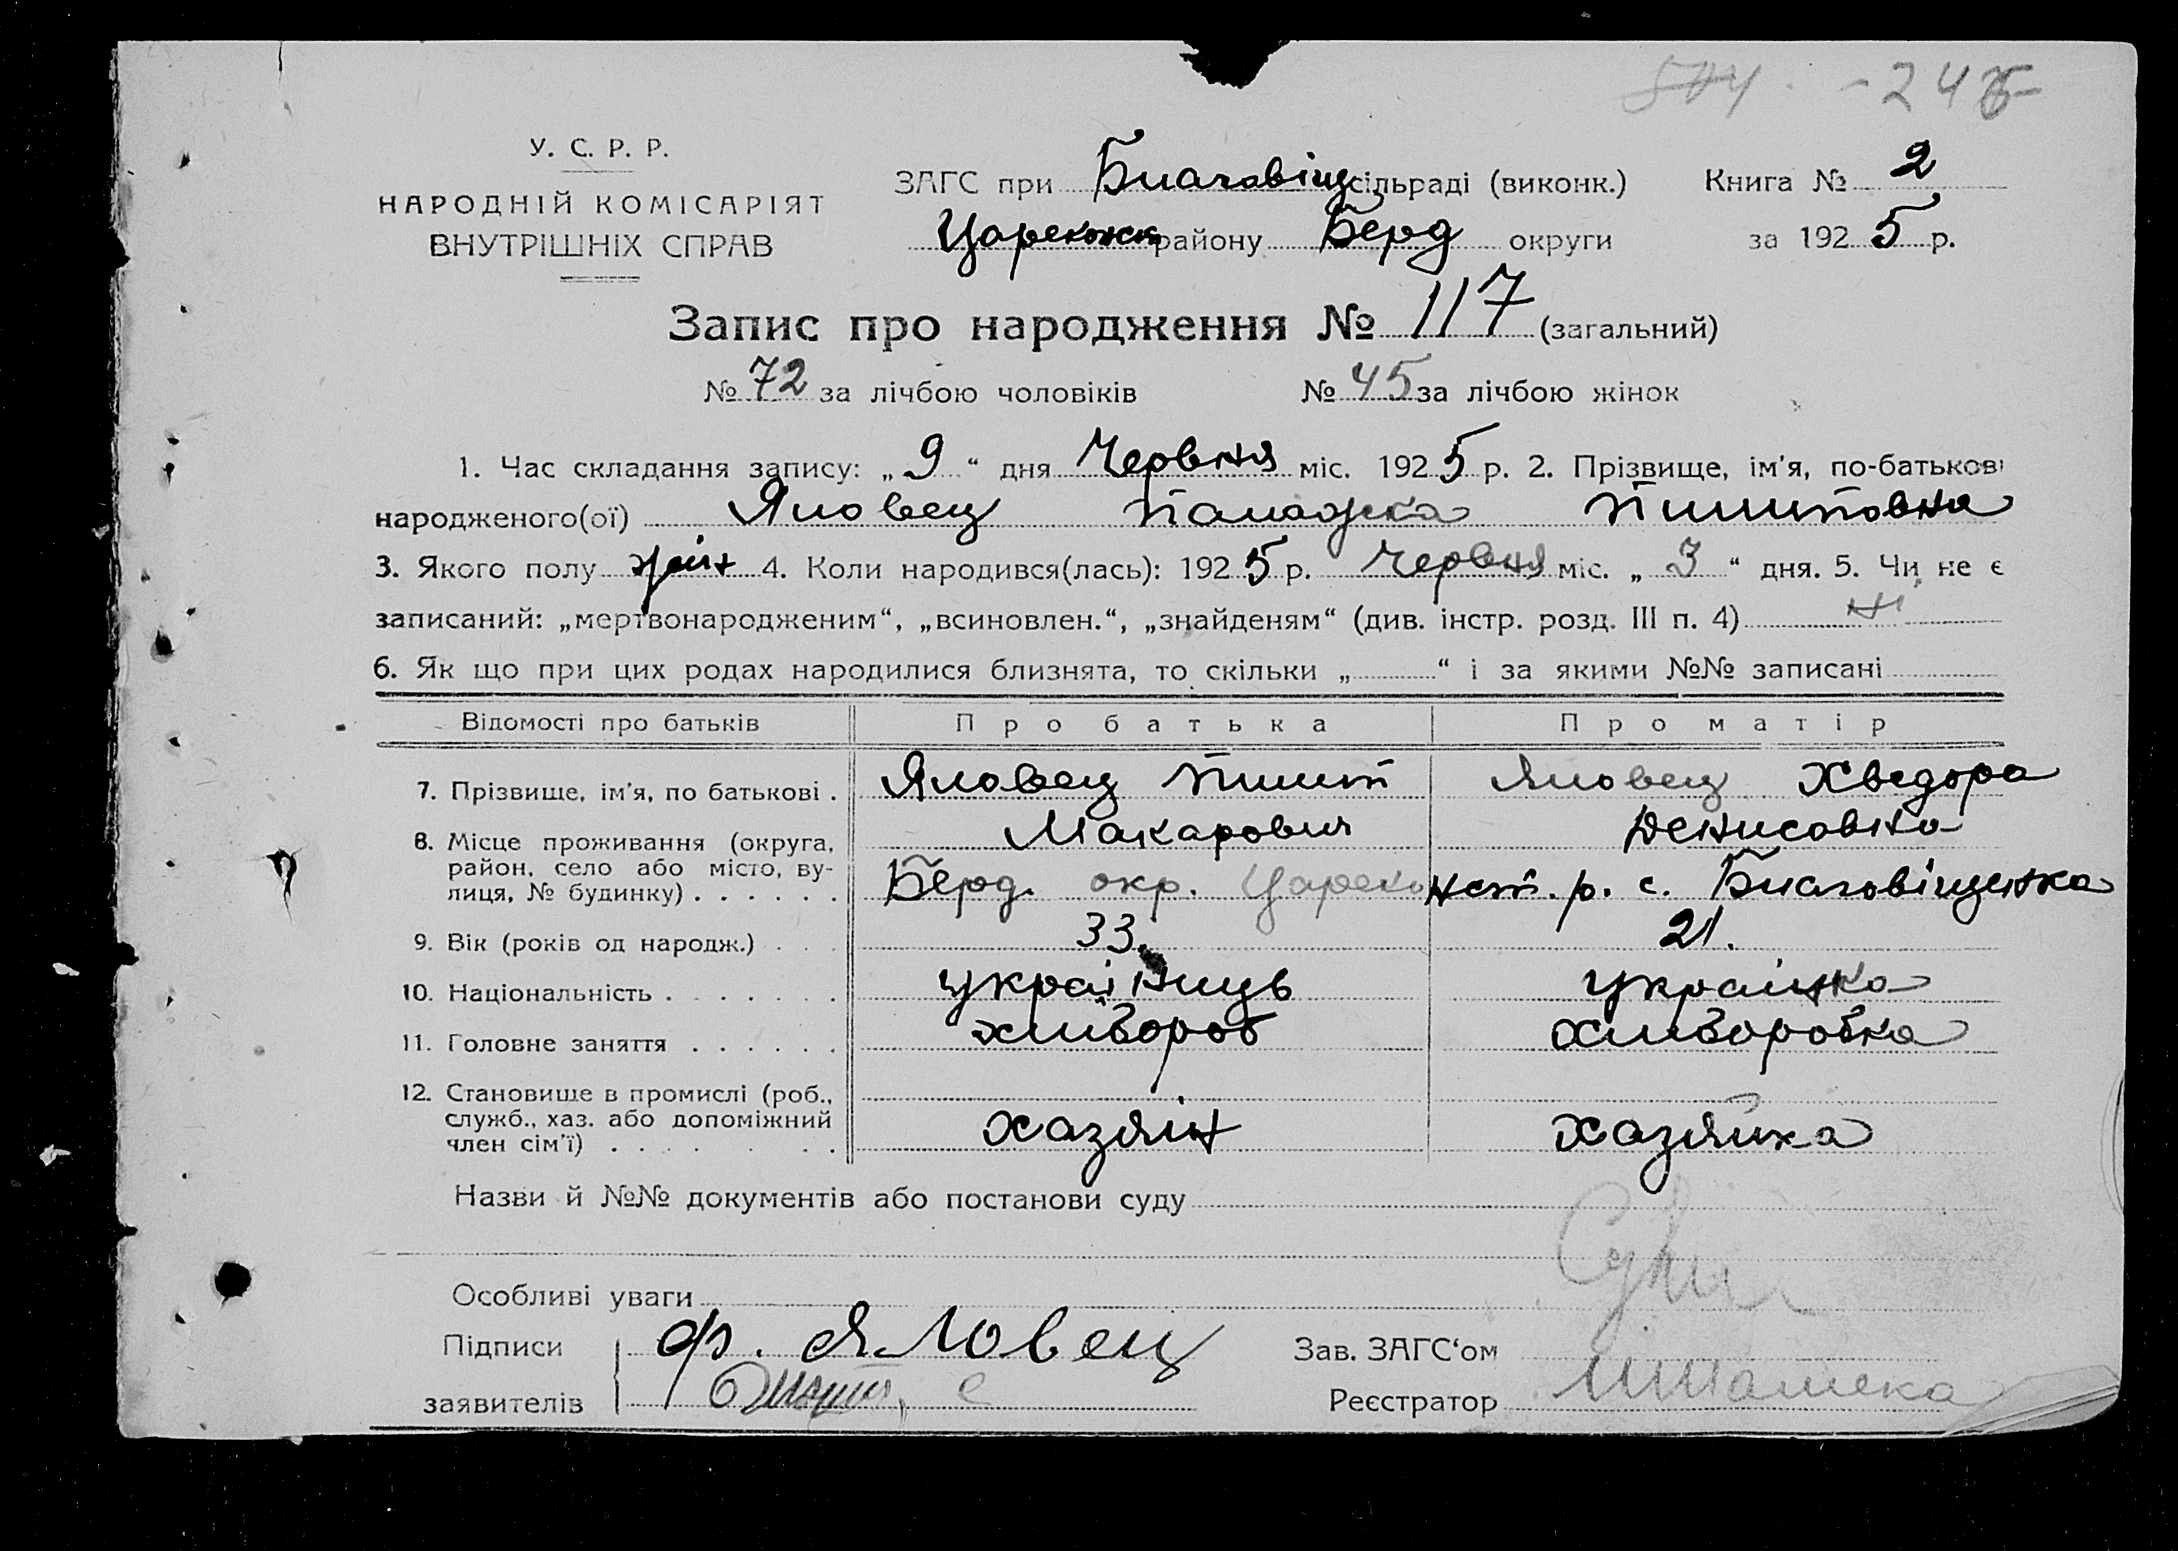 504 - 246
У. С. Р. Р.
НАРОДНІЙ КОМІСАРІЯТ
ВНУТРІШНІХ СПРАВ
ЗАГС при Благовіщ сільраді (виконк.) Книга № 2
Царекостян району Берд округи за 1925 р.
Запис про народження № 117 (загальний)
№ 72 за лічбою чоловіків № 45 за лічбою жінок
1. Час складання запису: „ 9 “ дня Червня міс. 1925 р. 2. Прізвище, ім'я, по-батькові
народженого(ої) Яловец Палажка Пилиповна
3. Якого полу жін 4. Коли народився(лась): 1925 р. Червня міс. „ 3 “ дня. 5. Чи не є
записаний: „мертвонародженим“, „всиновлен.“, „знайденям“ (див. інстр. розд. III п. 4) ні
6. Як що при цих родах народилися близнята, то скільки „ “ і за якими №№ записані
Відомості про батьків Про батька Про матір
7. Прізвище, ім'я, по батькові . Яловец Пилип Яловец Хведора
Макарович Денисовна
8. Місце проживання (округа,
район, село або місто, ву-
лиця, № будинку) . . . . . . Берд. окр. Цареконст. р. с. Благовіщенка
9. Вік (років од народж.) . . . 33. 21.
10. Національність . . . . . . . українець українка
11. Головне заняття . . . . . . хлібороб хліборобка
12. Становище в промислі (роб.,
служб., хаз. або допоміжний
член сім'ї) . . . . . . . хазяін хазяйка
Назви й №№ документів або постанови суду
Особливі уваги
Підписи Ф. Яловец Зав. ЗАГС‘ом
заявителів Реєстратор